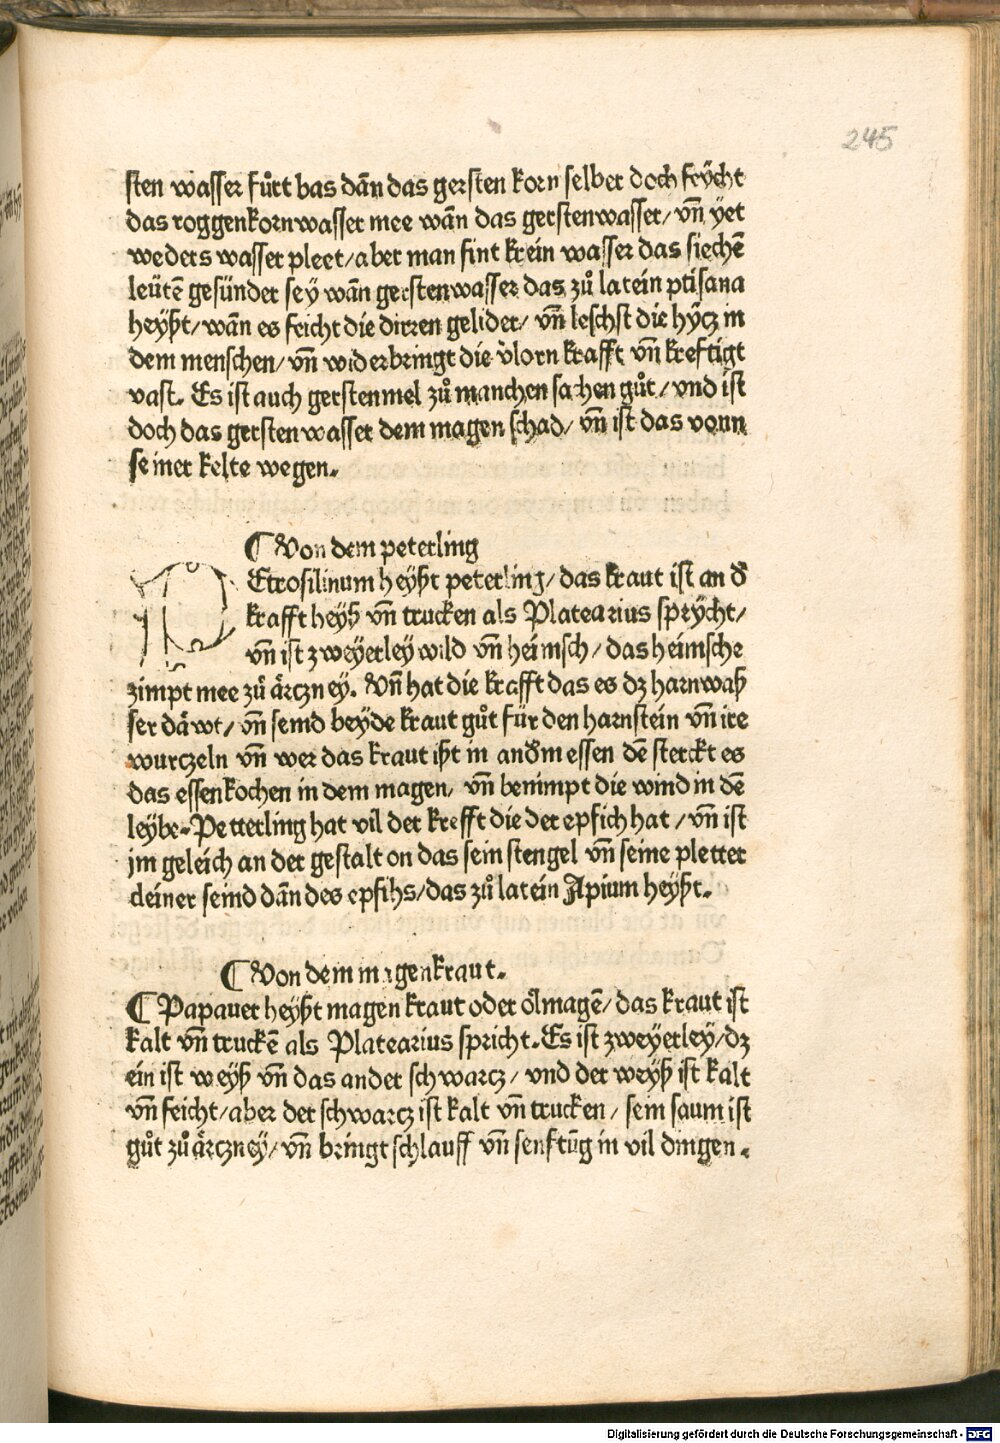 245
sten wasser fůrt bas dān das gersten korn selber doch feÿcht
das roggenkornwasser mee wān das gerstenwasser/ vn̄ yet
weders wasser pleet/aber man fint krein wasser das siechē
leütē gesünder seÿ wān gerstenwasser das zů latein ptisana
heyßt/wān es feicht die dirren gelider/ vn̄ leschst die hÿcz in
dem menschen/ vn̄ widerbringt die v̓lorn krafft vn̄ kreftigt
vast. Es ist auch gerstenmel zů manchen sachen gůt/ vnd ist
doch das gersten wasser dem magen schad/ vn̄ ist das vonn
seiner kelte wegen.
¶ Von dem peterling
P Etrosilinum heyßt peterling/ das kraut ist an d̓
krafft heyß vn̄ trucken als Platearius sprÿcht/
vn̄ ist zweÿerleÿ wild vn̄ heimsch/ das heimsche
zimpt mee zů ärczneÿ. Vn̄ hat die krafft das es dz harnwaß
ser däwt/ vn̄ seind beÿde kraut gůt für den harnstein vn̄ ire
wurczeln vn̄ wer das kraut ißt in and̓m essen dē sterckt es
das essenkochen in dem magen, vn̄ benimpt die wind in dē
leÿbe. Petterling hat vil der krefft die der epfich hat/ vn̄ ist
jm geleich an der gestalt on das sein stengel vn̄ seine pletter
cleiner seind dān des epfihs/das zů latein Apium heyßt.
¶ Von dem magenkraut.
¶ Papauer heyßt magen kraut oder ölmagē/ das kraut ist
kalt vn̄ truckē als Platearius spricht. Es ist zweyerley/dz
ein ist weyß vn̄ das ander schwarcz/ vnd der weyß ist kalt
vn̄ feicht/aber der schwarcz ist kalt vn̄ trucken/ sein saum ist
gůt zů ärczney/ vn̄ bringt schlauff vn̄ senftūg in vil dingen.
Digitalisierung gefördert durch die Deutsche Forschungsgemeinschaft - DFG